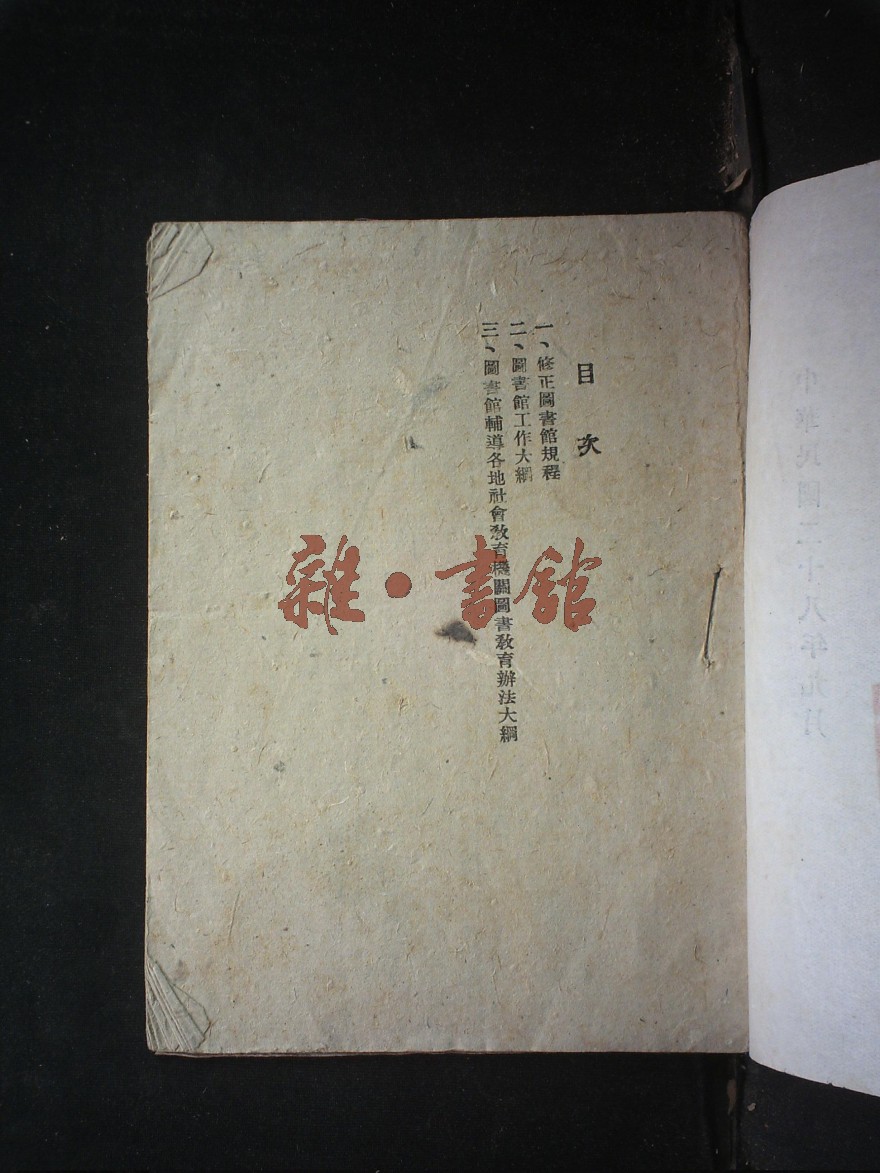 中華民國二十八年九月
目次
一、修正圖書館規程
二、圖書館工作大綱
三、圖書館輔導各地社會教育機關圖書教育辦法大綱
雜·書館